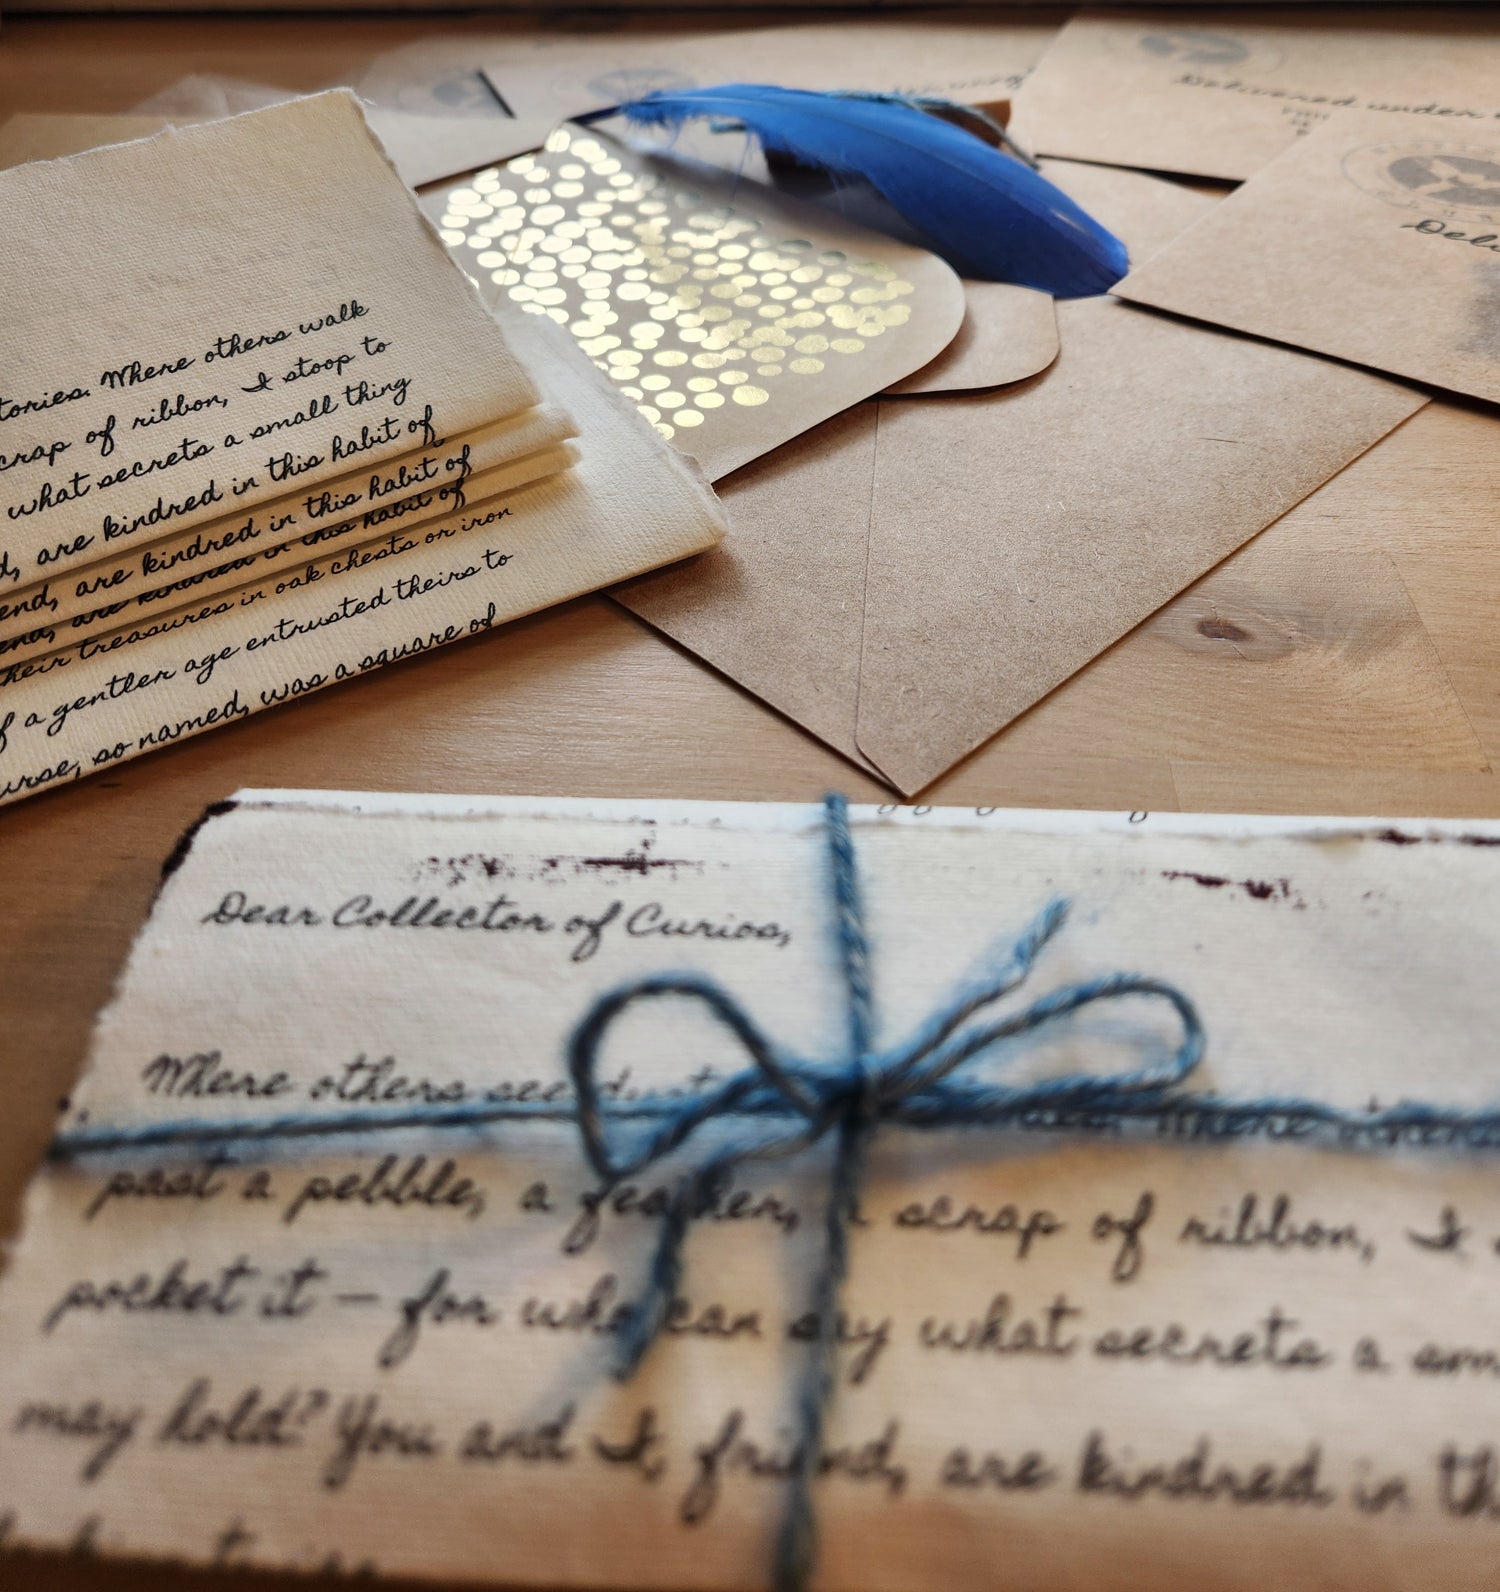 Delivered under
Delivered under
tories. Where others walk
scrap of ribbon, I stoop to
what secrets a small thing
d, are kindred in this habit of
end, are kindred in this habit of
end, are kindred in this habit of
their treasures in oak chests or iron
of a gentler age entrusted theirs to
urse, so named, was a square of
Dear Collector of Curios,
Where others see dust, Where others
past a pebble, a feather, a scrap of ribbon, I
pocket it — for who can say what secrets a sm
may hold? You and I, friend, are kindred in th